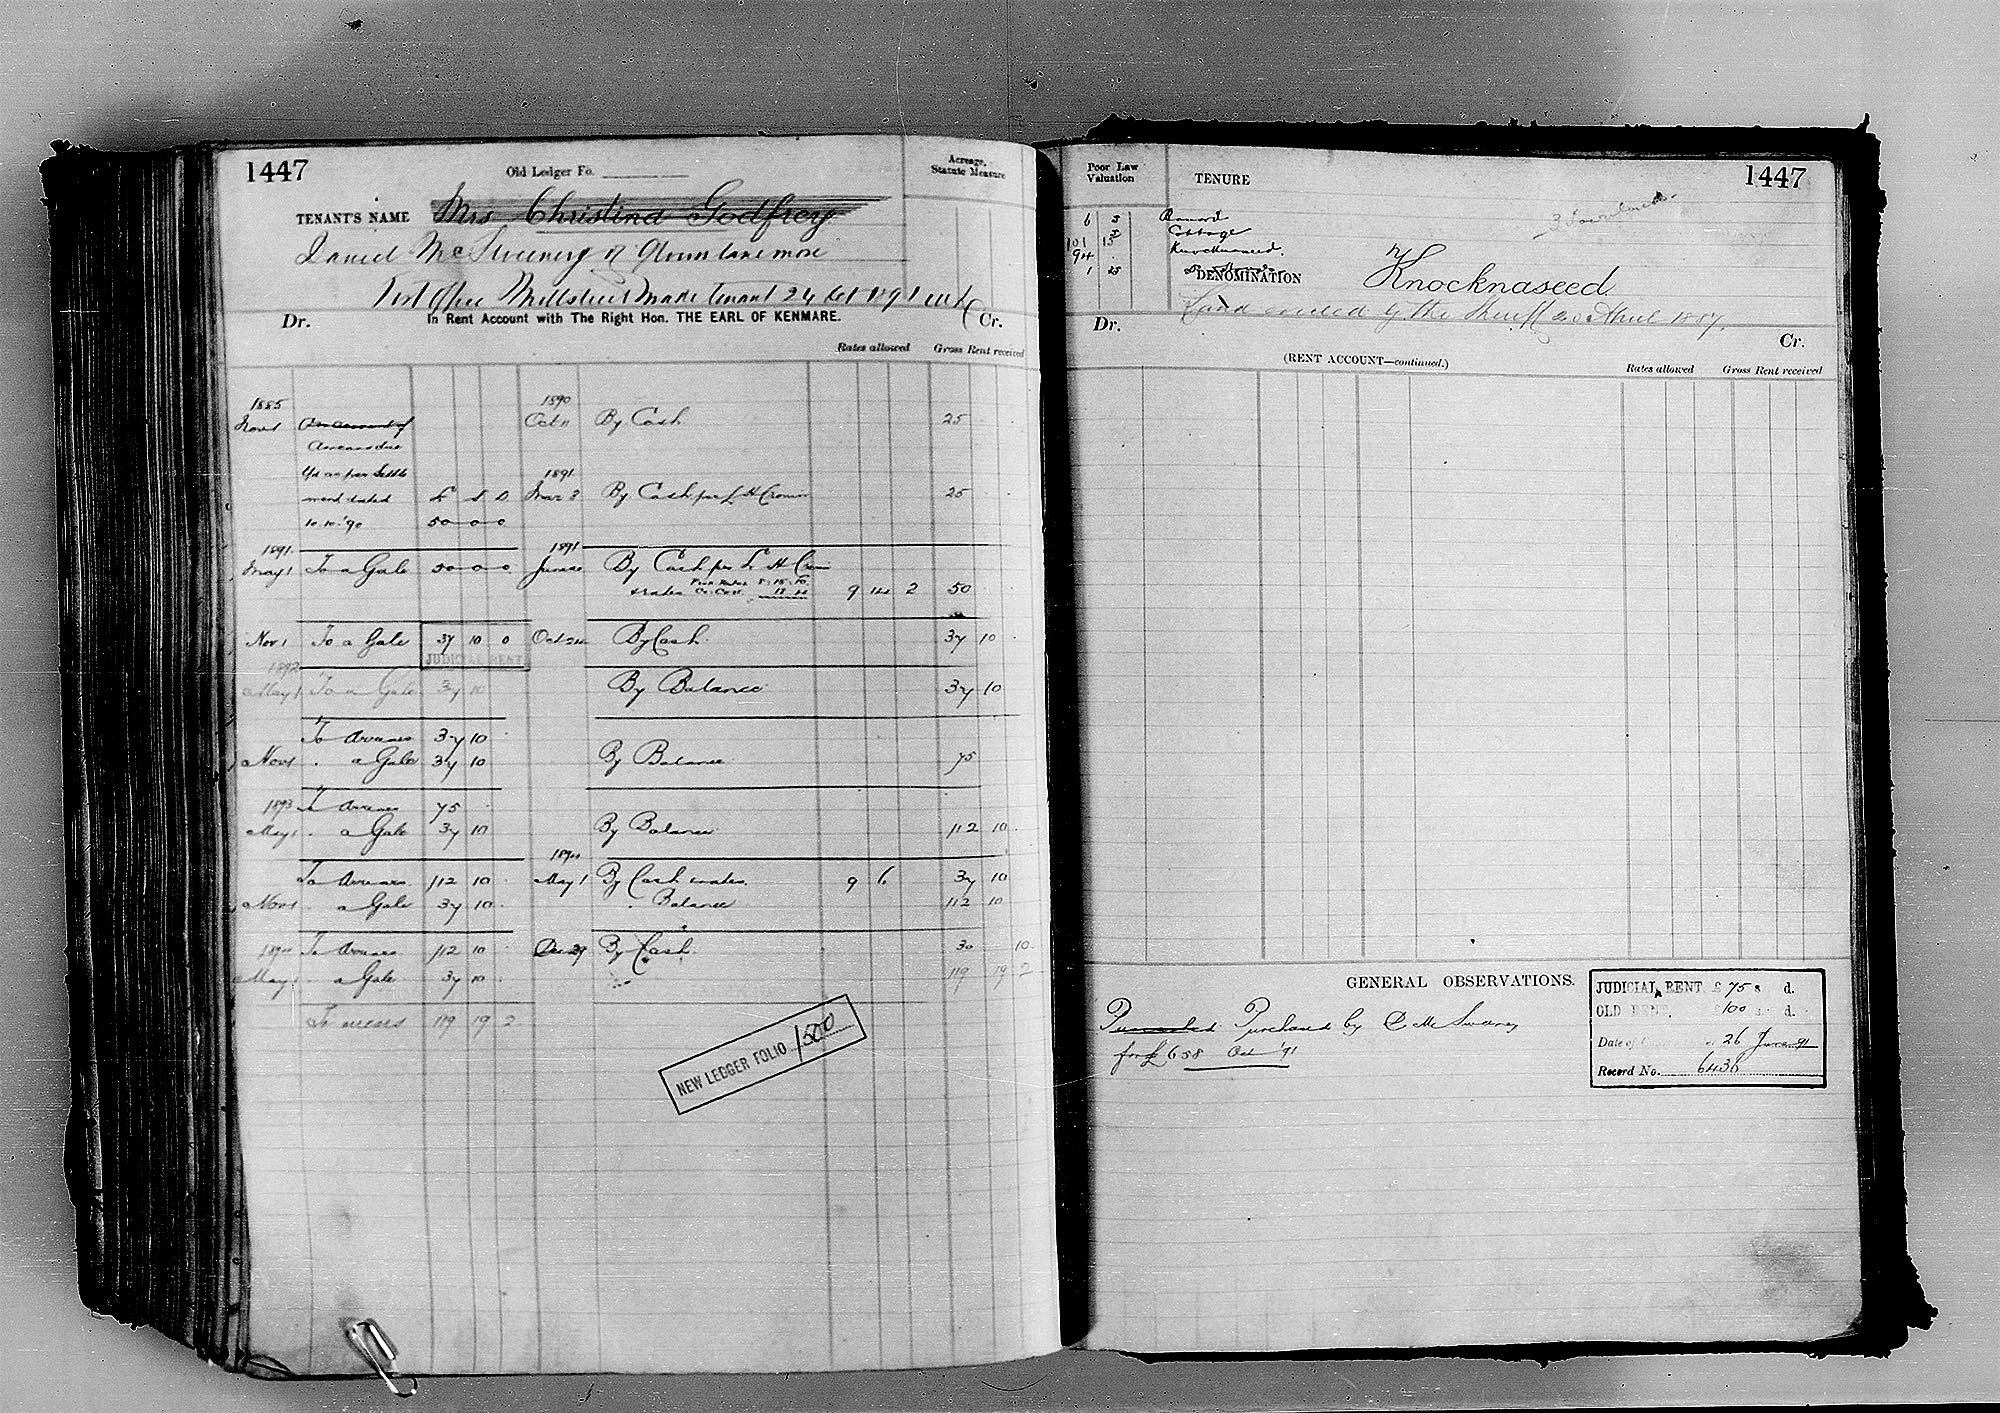 1447
Old Ledger Fo.
Acreage, Statute Measure
TENANT'S NAME Mrs Christina Godfrey
Daniel McSweeney of
Post Office Millstreet made tenant 24 Oct 1891
Dr. In Rent Account with The Right Hon. THE EARL OF KENMARE. Cr.
Rates allowed Gross Rent received
1885 1890
Nov 1 On account of Oct 11 By Cash 25
Arrears due
as per Settle 1891
ment dated £ S D Mar 3 By Cash per L H Cronin 25
10.10.'90 50 0 0
1891 1891
May 1 To a Gale 50 0 0 June By Cash per L H Cronin
Poor Rates 8.15.10
& rates Co. Cess 18.4 9 14 2 50
Nov 1 To a Gale 37 10 0 Oct 24 By Cash 37 10
JUDICIAL RENT
1892
May 1 To a Gale 37 10 By Balance 37 10
To Arrears 37 10
Nov 1 . a Gale 37 10 By Balance 75
1893 To Arrears 75
May 1 . a Gale 37 10 By Balance 112 10
1894
To Arrears 112 10 May 1 By Cash & rates 9 6 37 10
Nov 1 . a Gale 37 10 . Balance 112 10
1894 To Arrears 112 10 Dec 29 By Cash 30 10
May 1 . a Gale 37 10 119 19 2
To arrears 119 19 2
NEW LEDGER FOLIO 1500
Poor Law Valuation
TENURE
1447
3 Townlands
6 5
Cottage
101 15 Knocknaseed
94
1 25
DENOMINATION Knocknaseed
Land evicted by the Sheriff 20 April 1887.
Dr. Cr.
(RENT ACCOUNT—continued.)
Rates allowed Gross Rent received
GENERAL OBSERVATIONS.
Purchased by D McSweeney
for £658 Oct '91
JUDICIAL RENT £75 s. d.
OLD RENT, £100 s. d.
Date of 26 June 91
Record No. 6438